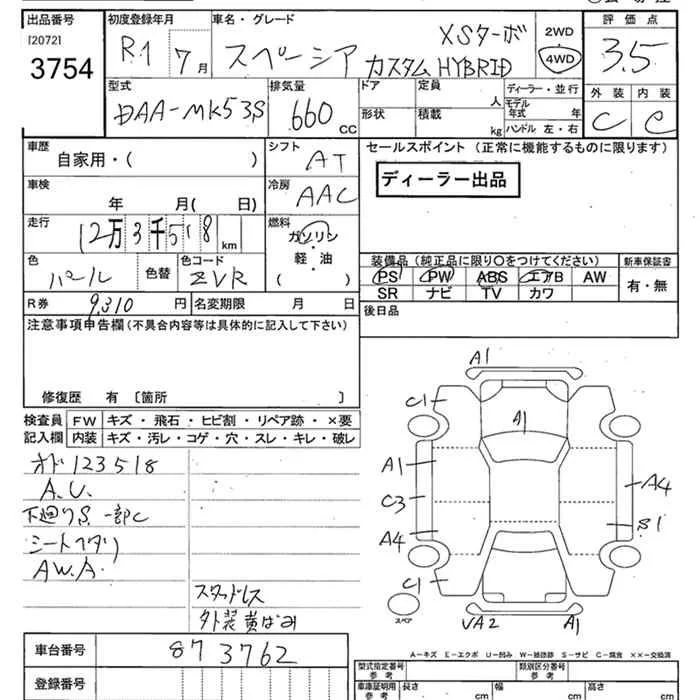 出品番号 初度登録年月 車名・グレード 評価点
[2072]
3754
R.1 7月 スペーシア XSターボ 2WD 3.5
カスタムHYBRID 4WD
型式 排気量 ドア 定員 ディーラー・並行 外装 内装
DAA-MK53S 660 CC 人 モデル年式 年 C C
形状 積載 kg ハンドル 左・右
車歴 シフト セールスポイント (正常に機能するものに限ります)
自家用・( ) AT
ディーラー出品
車検 冷房
年 月( 日) AAC
走行 燃料
12万3千518 km ガソリン
・
軽・油
( )
色 色替 色コード
パール ZVR
装備品(純正品に限り〇をつけてください) 新車保証書
PS PW ABS エアB AW 有・無
SR ナビ TV カワ
R券 9,310 円 名変期限 月 日
後日品
注意事項申告欄(不具合内容等は具体的に記入して下さい)
修復歴 有 〔箇所 〕
検査員 FW キズ・飛石・ヒビ割・リペア跡・×要
記入欄 内装 キズ・汚レ・コゲ・穴・スレ・キレ・破レ
オド123518
A.U.
下廻りS 一部C
シートヘタリ
A.W.A.
スタッドレス
外装黄ばみ
A1
C1 C1
A1
A1 A4
C3
A4 S1
C1
スペア
A1
A-キズ E-エクボ U-凹み W-補修跡 S-サビ C-腐食 XX-交換済
車台番号 873762
登録番号
型式指定番号 参考 類別区分番号 参考
車庫証明用 参考 長さ cm 幅 cm 高さ cm